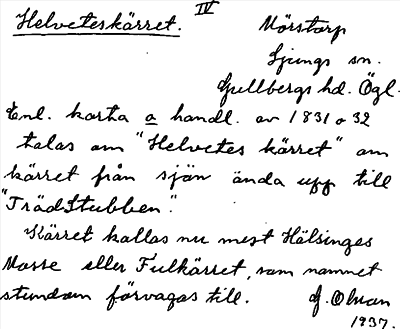 IV
Helveteskärret. Mörstorp
Ljungs sn.
Gullbergs hd. Ögl.
Enl. karta o handl. av 1831 o 32
talas om "Helvetes kärret" om
kärret från sjön ända upp till
"Trädstubben".
Kärret kallas nu mest Hälsinges
Mosse eller Fulkärret, som namnet
stundom förvagas till. G. Olson
1937.